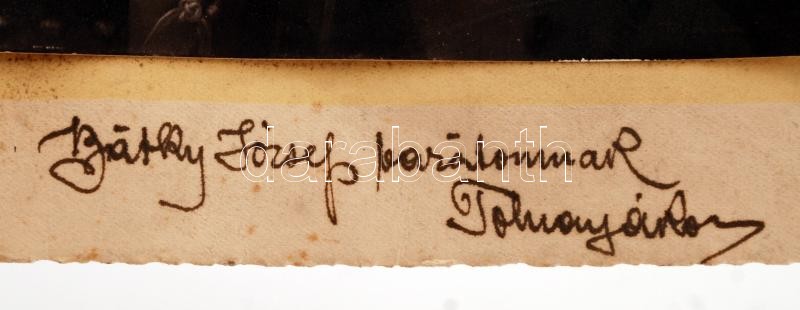 Bátky József barátomnak
Tolnay Ákos
darabanth